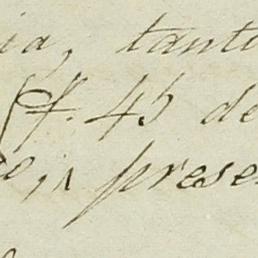 ia, tanto
(f. 45 de
e, presen